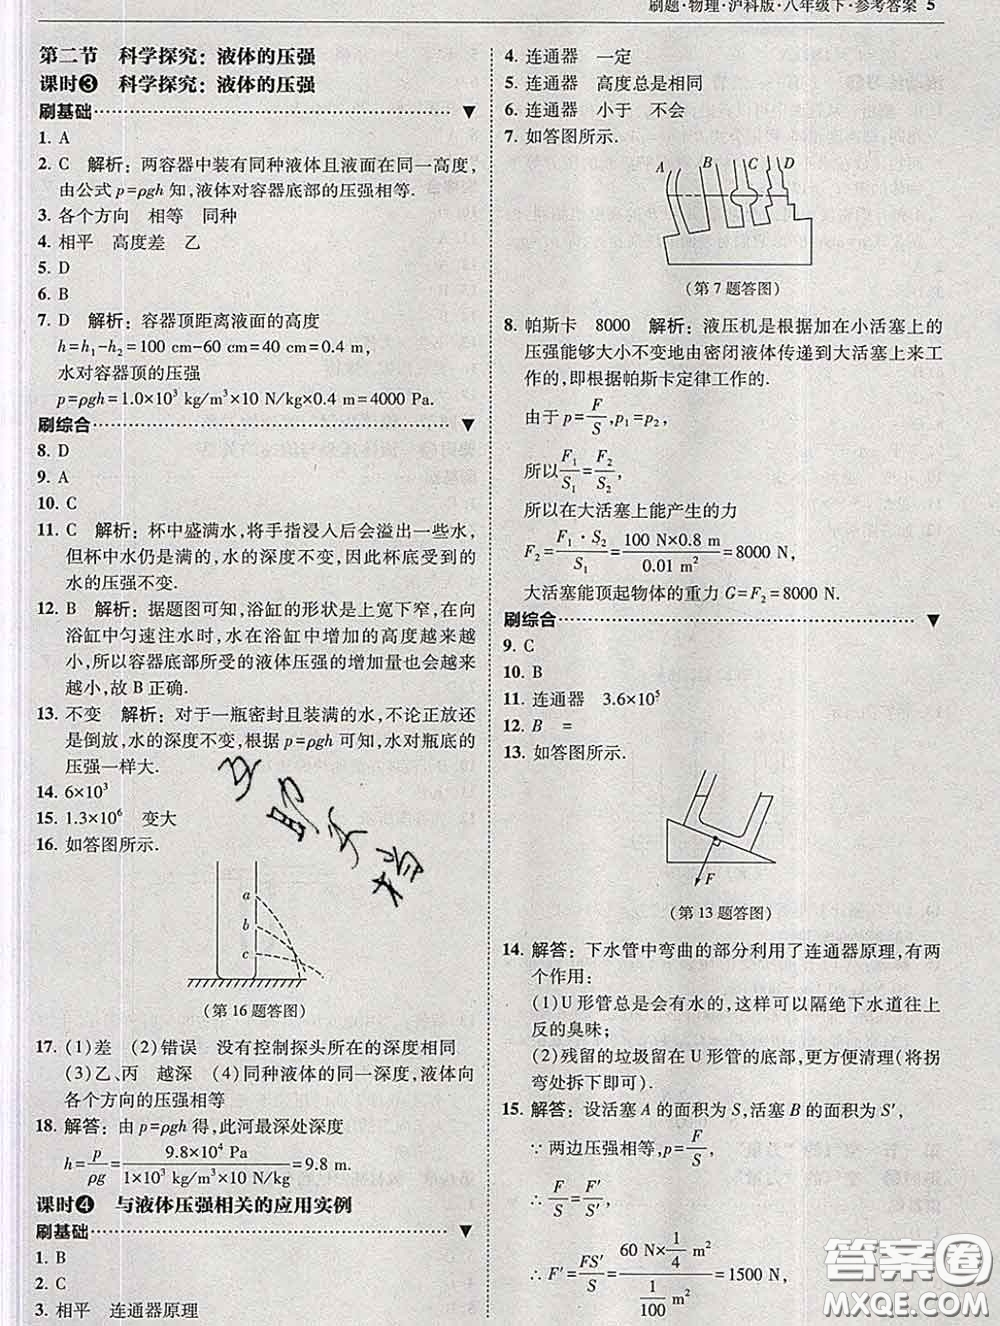 刷题·物理·沪科版·八年级下·参考答案 5
第二节 科学探究：液体的压强
课时❸ 科学探究：液体的压强
刷基础
1. A
2. C 解析：两容器中装有同种液体且液面在同一高度,
由公式 p=ρgh 知,液体对容器底部的压强相等.
3. 各个方向 相等 同种
4. 相平 高度差 乙
5. D
6. B
7. D 解析：容器顶距离液面的高度
h=h₁-h₂=100 cm-60 cm=40 cm=0.4 m,
水对容器顶的压强
p=ρgh=1.0×10³ kg/m³×10 N/kg×0.4 m=4000 Pa.
刷综合
8. D
9. A
10. C
11. C 解析：杯中盛满水,将手指浸入后会溢出一些水,
但杯中水仍是满的,水的深度不变,因此杯底受到的
水的压强不变.
12. B 解析：据题图可知,浴缸的形状是上宽下窄,在向
浴缸中匀速注水时,水在浴缸中增加的高度越来越
小,所以容器底部所受的液体压强的增加量也会越来
越小,故 B 正确.
13. 不变 解析：对于一瓶密封且装满的水,不论正放还
是倒放,水的深度不变,根据 p=ρgh 可知,水对瓶底的
压强一样大.
14. 6×10³
15. 1.3×10⁶ 变大
16. 如答图所示.
a
b
c
(第 16 题答图)
17. (1)差 (2)错误 没有控制探头所在的深度相同
(3)乙、丙 越深 (4)同种液体的同一深度,液体向
各个方向的压强相等
18. 解答：由 p=ρgh 得,此河最深处深度
h=p/ρg=9.8×10⁴ Pa/1×10³ kg/m³×10 N/kg=9.8 m.
课时❹ 与液体压强相关的应用实例
刷基础
1. B
2. C
3. 相平 连通器原理
4. 连通器 一定
5. 连通器 高度总是相同
6. 连通器 小于 不会
7. 如答图所示.
A B C D
(第 7 题答图)
8. 帕斯卡 8000 解析：液压机是根据加在小活塞上的
压强能够大小不变地由密闭液体传递到大活塞上来工
作的,即根据帕斯卡定律工作的.
由于 p=F/S,p₁=p₂,
所以 F₁/S₁=F₂/S₂,
所以在大活塞上能产生的力
F₂=F₁·S₂/S₁=100 N×0.8 m/0.01 m²=8000 N,
大活塞能顶起物体的重力 G=F₂=8000 N.
刷综合
9. C
10. B
11. 连通器 3.6×10⁵
12. B =
13. 如答图所示.
F
(第 13 题答图)
14. 解答：下水管中弯曲的部分利用了连通器原理,有两
个作用：
(1)U 形管总是会有水的,这样可以隔绝下水道往上
反的臭味；
(2)残留的垃圾留在 U 形管的底部,更方便清理(将拐
弯处拆下即可).
15. 解答：设活塞 A 的面积为 S,活塞 B 的面积为 S′,
∵两边压强相等,p=F/S,
∴F/S=F′/S′,
∴F′=FS′/S=60 N×1/4 m²/1/100 m²=1500 N,
答案圈
MXQE.COM